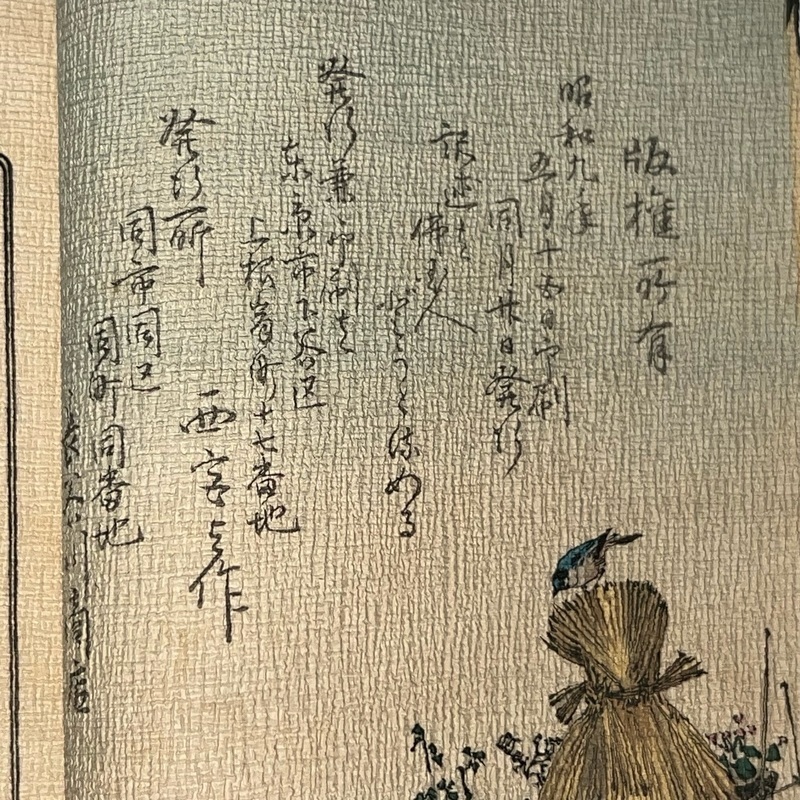 版権所有
昭和九年
五月十五日印刷
同月廿日発行
訳述者
佛国人
どうとるめる
発行兼印刷者
東京市下谷区
上根岸町十七番地
西宮与作
発行所
同市同区
同町同番地
長谷川商店